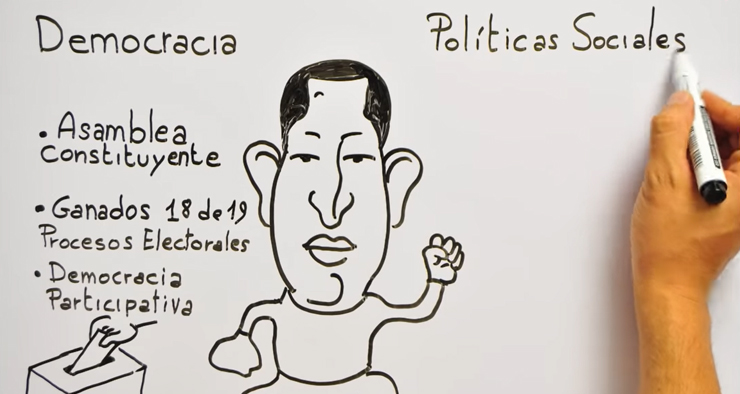 Democracia
• Asamblea
constituyente
• Ganados 18 de 19
Procesos Electorales
• Democracia
Participativa
Políticas Sociales